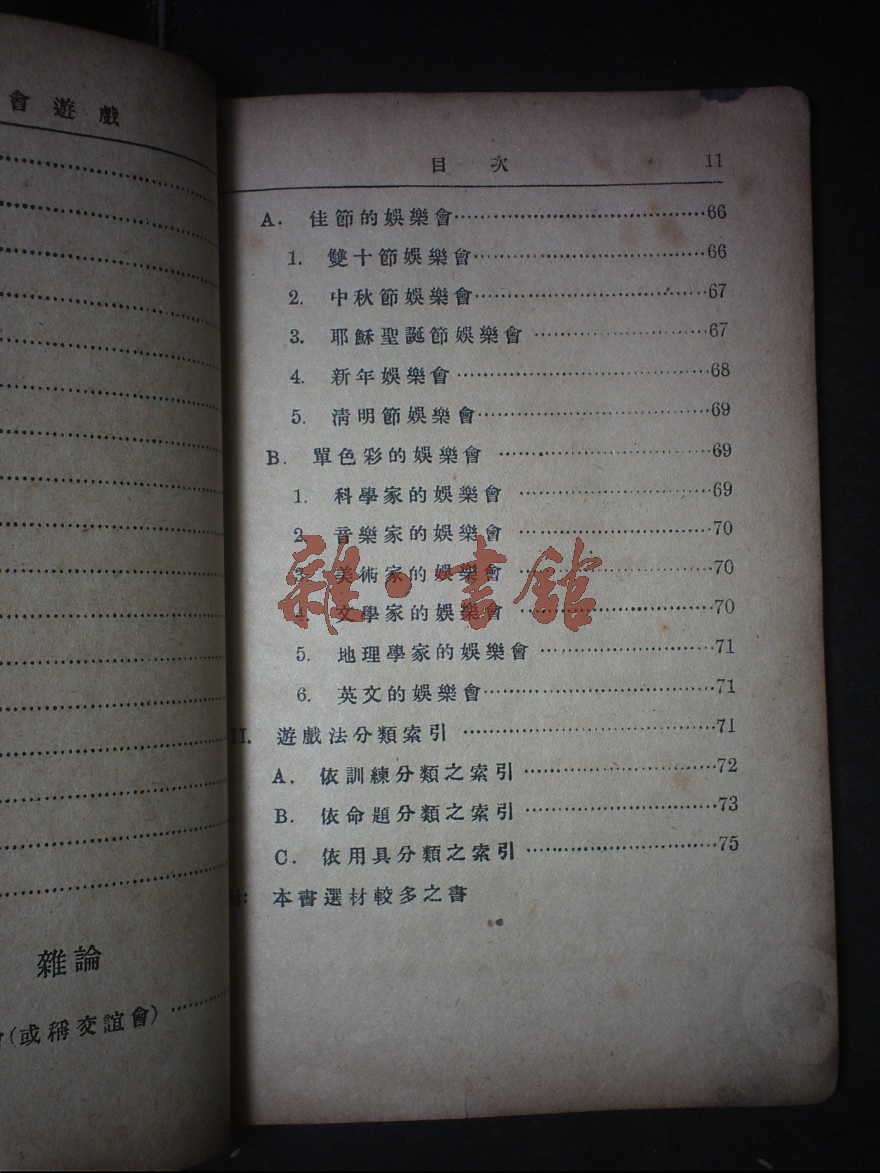 會遊戲
雜論
會(或稱交誼會)
目 次 11
A. 佳節的娛樂會 66
1. 雙十節娛樂會 66
2. 中秋節娛樂會 67
3. 耶穌聖誕節娛樂會 67
4. 新年娛樂會 68
5. 清明節娛樂會 69
B. 單色彩的娛樂會 69
1. 科學家的娛樂會 69
2. 音樂家的娛樂會 70
3. 美術家的娛樂會 70
4. 文學家的娛樂會 70
5. 地理學家的娛樂會 71
6. 英文的娛樂會 71
II. 遊戲法分類索引 71
A. 依訓練分類之索引 72
B. 依命題分類之索引 73
C. 依用具分類之索引 75
本書選材較多之書
雜·書館